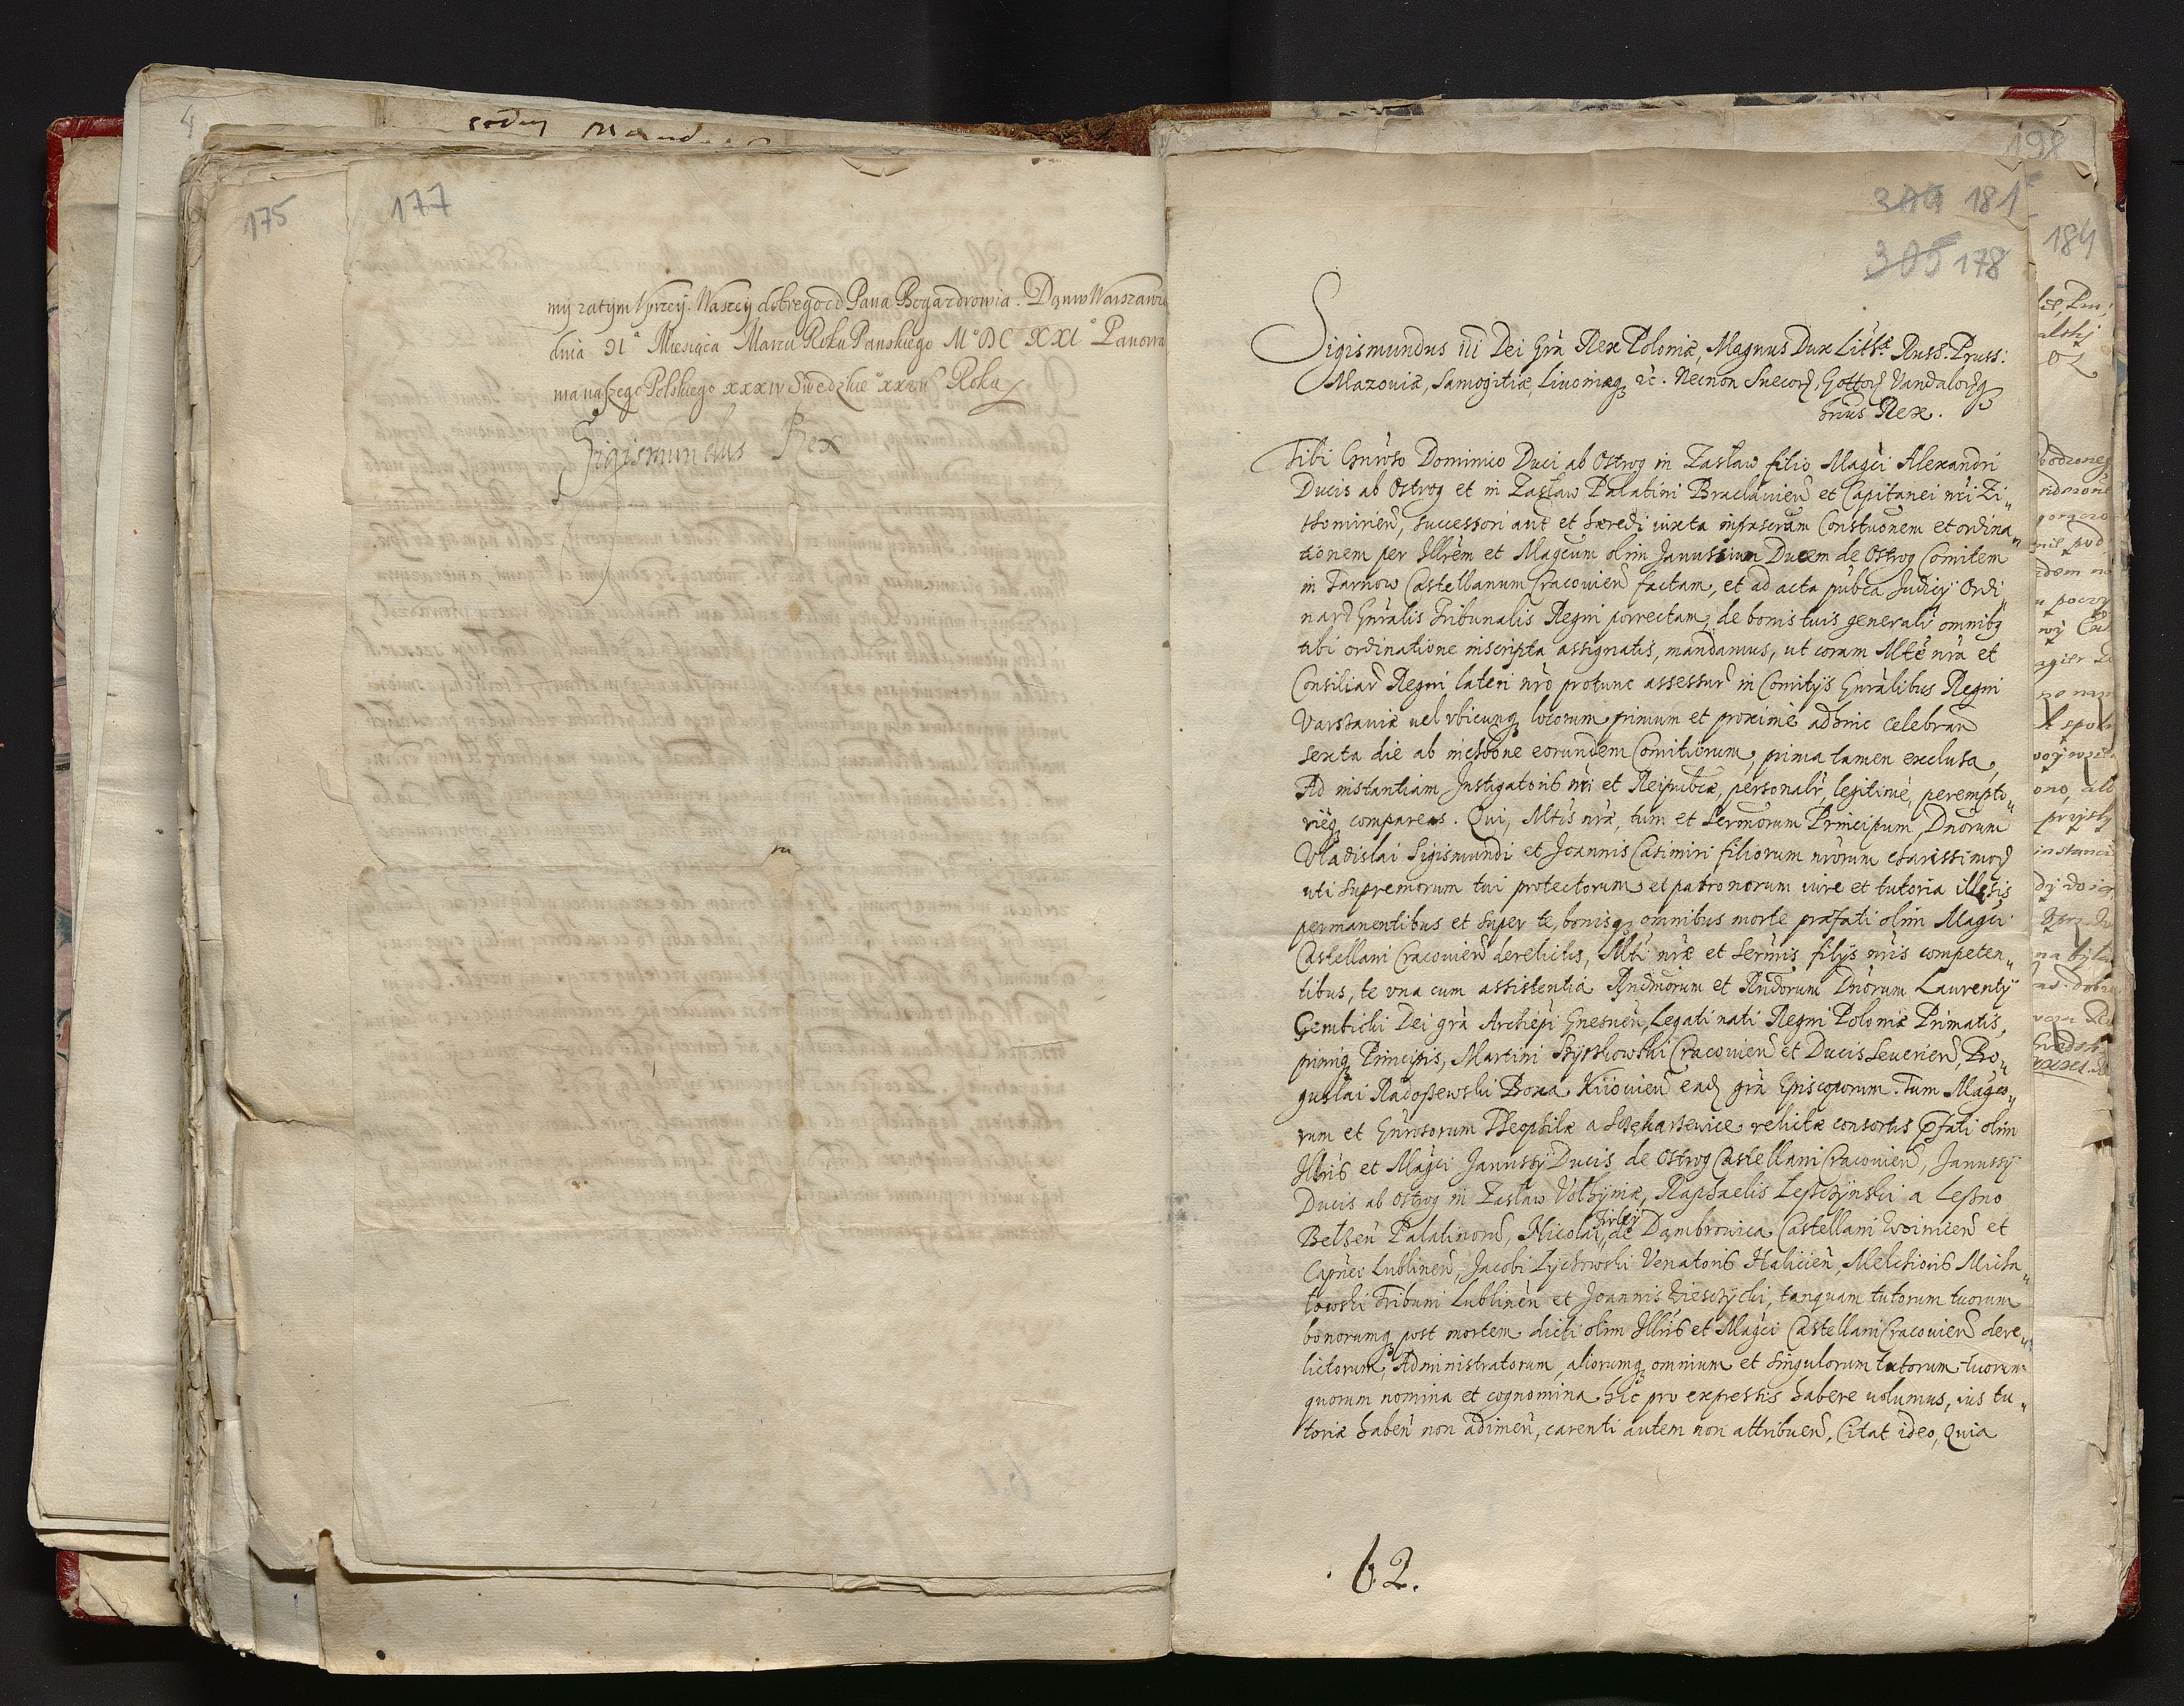 4
175
177
my zatym Vprzey. Waszey dobrego od Pana Boga zdrowia. Dan w Warszawie
dnia 31ª Miesiąca Marca Roku Panskiego M° DC XXI° Panowa
nia naszego Polskiego XXXIV Swedzkie° Roku
Sigismundus Rex
198
304 181
305 178
184
Sigismundus iii Dei Gra Rex Poloniæ, Magnus Dux Lith: Russ: Pruss:
Mazoviæ, Samogitiæ, Livoniæq etc. Necnon Suecor, Gottor Vandalorq
hrius Rex.
Tibi Gnroso Dominico Duci ab Ostrog in Zasław filio Magci Alexandri
Ducis ab Ostrog et in Zasław Palatini Braclavien et Capitanei nri Zi„
thomirien, successori aut et hæredi iuxta infrascram Constuonem et ordina„
tionem per Illrem et Magcum olim Janussium Ducem de Ostrog Comitem
in Tarnow Castellanum Cracovien factam, et ad acta pubca Judicij Ordi„
nar Gnralis Tribunalis Regni porrectam, de bonis tuis generalr omnibq
tibi ordinatione inscripta assignatis, mandamus, ut coram Mte nra et
Consiliar Regni lateri nro protunc assessur in Comitijs Gnralibus Regni
Varsraviæ vel vbicunq locorum primum et proxime adhinc celebran
sexta die ab inchoone eorundem Comitiorum, prima tamen exclusa,
Ad instantiam Instigatoris nri et Reipubcæ, personalr, legitime, perempto„
rieq compareas. Qui, Mtis nræ, tum et Sermorum Principum Dnorum
Vladislai Sigismundi et Joannis Casimiri filiorum nrorum charissimor
uti supremorum tui protectorum et patronorum iure et tutoria illęsis
permanentibus et super te, bonisq omnibus morte præfati olim Magci
Castellani Cracovien derelictis, Mti nræ et Sermis filijs nris competen„
tibus, te vna cum assistentia Rndmorum et Rndorum Dnorum Laurentij
Gembicki Dei gra Archiepi Gnesnen, Legati nati Regni Poloniæ Primatis,
primiq Principis, Martini Szyszkowski Cracovien et Ducis Severien, Bo„
guslai Radoszewski Boxa Kiiovien ead gra Episcoporum. Tum Magco„
rum et Gnrosorum Theophilæ a relictæ consortis pfati olim
Illris et Magci Janussij Ducis de Ostrog Castellani Cracovien, Janussij
Ducis ab Ostrog in Zasław Volhyniæ, Raphaelis Leszczynski a Leszno
Belzen Palatinor, Nicolai Firlej de Dambrowica Castellani Woinicen et
Capnei Lublinen, Jacobi Lychowski Venatoris Halicien, Melchioris Micha„
łowski Tribuni Lublinen et Joannis, tanquam tutorum tuorum
bonorumq post mortem dicti olim Illris et Magci Castellani Cracovien dere„
lictorum, Administratorum, aliorumq omnium et singulorum tutorum tuorum
quorum nomina et cognomina hic pro expressis habere volumus, ius tu„
toriæ haben non adimen, carenti autem non attribuen, Citat ideo, Quia
62.